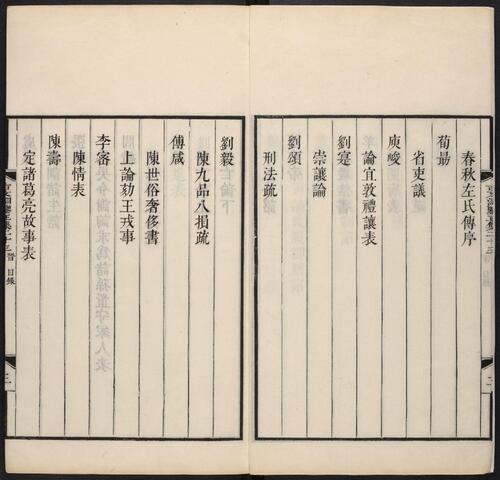 春秋左氏傳序
荀勗
省吏議
庾峻
論宜敦禮讓表
劉寔
崇讓論
劉頌
刑法疏
二
劉毅
陳九品八損疏
傅咸
陳世俗奢侈書
上論劾王戎事
李密
陳情表
陳壽
定諸葛亮故事表
目錄
三